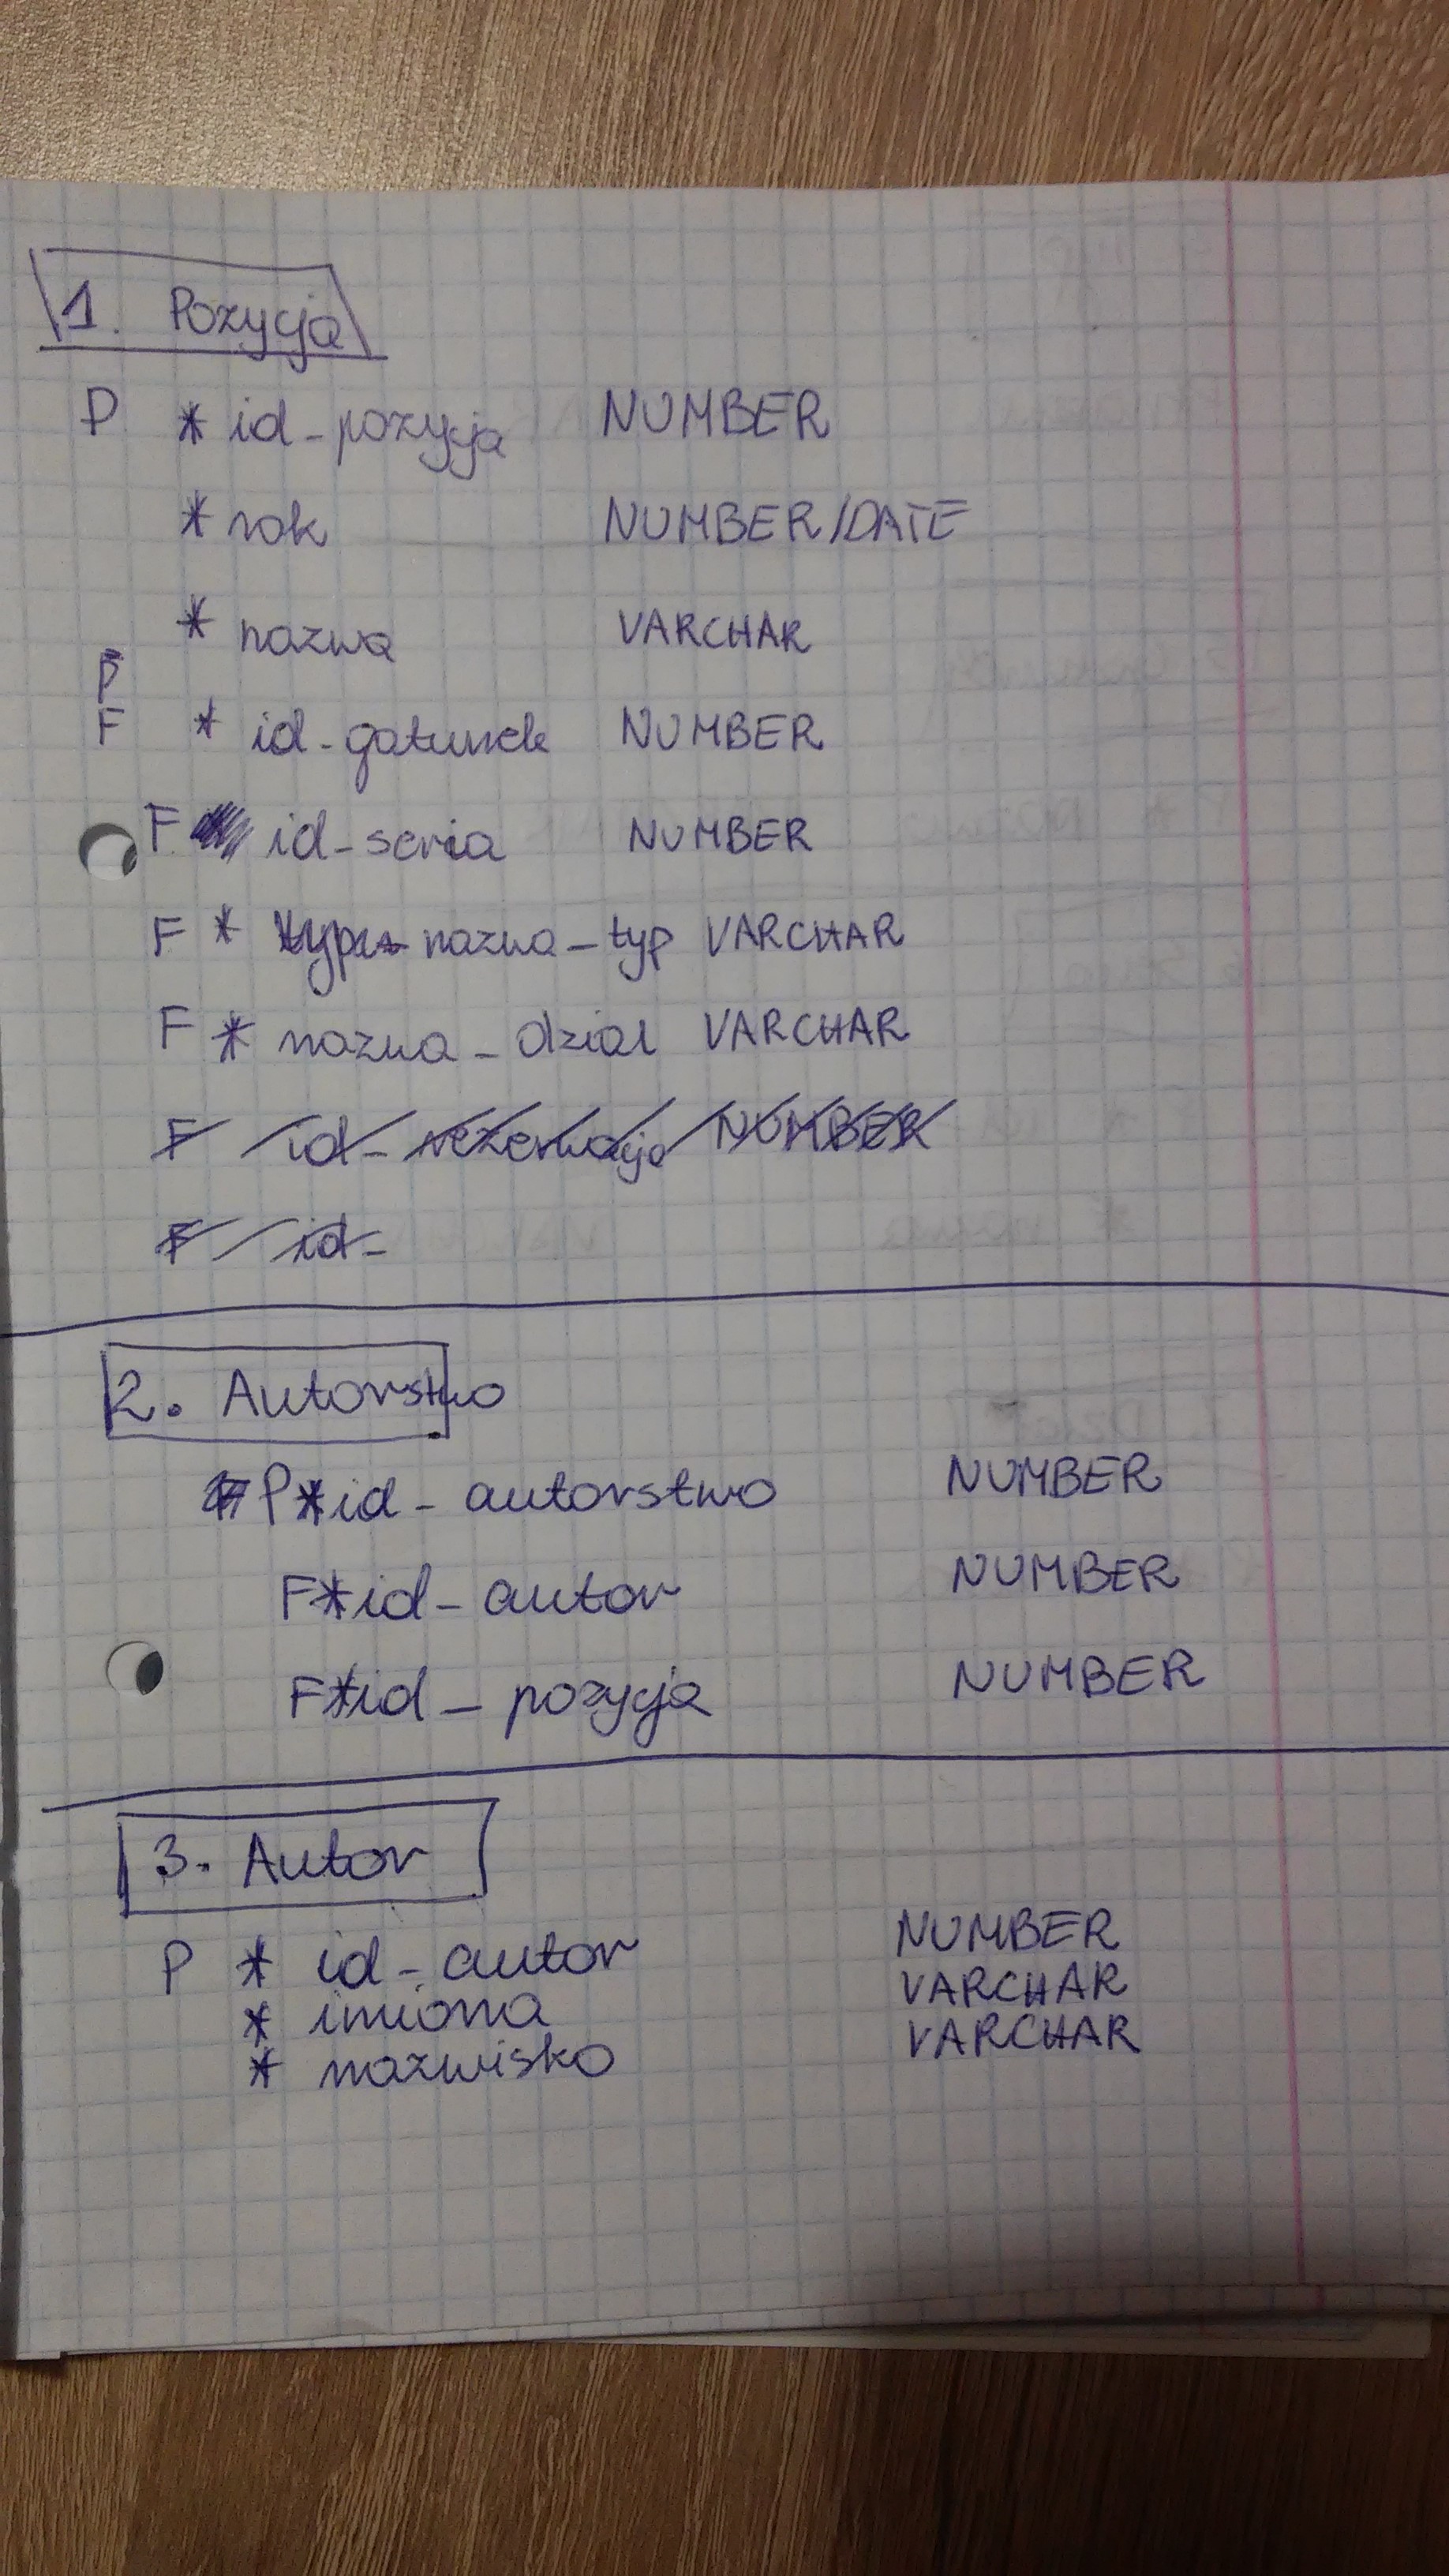 1. Pozycja
P * id_pozycja NUMBER
* rok NUMBER/DATE
* nazwa VARCHAR
P
F * id_gatunek NUMBER
F id_seria NUMBER
F * nazwa_typ VARCHAR
F * nazwa_dzial VARCHAR
F id_rezerwacja NUMBER
F id_
2. Autorstwo
P*id_autorstwo NUMBER
F*id_autor NUMBER
F*id_pozycja NUMBER
3. Autor
P * id_autor NUMBER
* imiona VARCHAR
* nazwisko VARCHAR